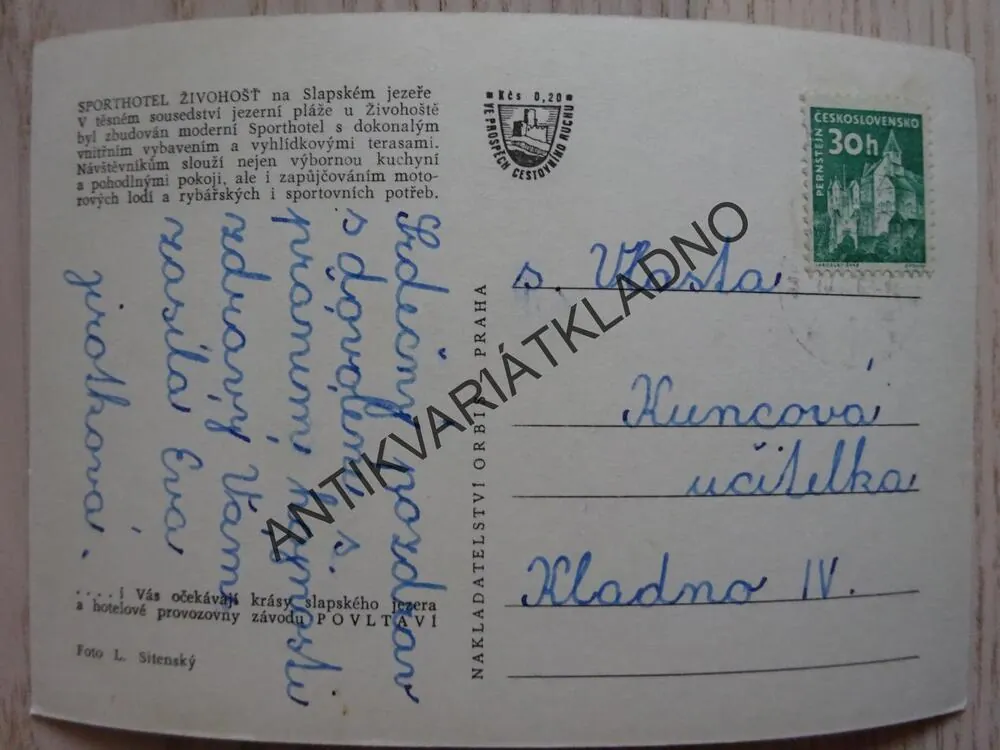 SPORTHOTEL ŽIVOHOŠŤ na Slapském jezeře
V těsném sousedství jezerní pláže u Živohoště
byl zbudován moderní Sporthotel s dokonalým
vnitřním vybavením a vyhlídkovými terasami.
Návštěvníkům slouží nejen výbornou kuchyní
a pohodlnými pokoji, ale i zapůjčováním moto-
rových lodí a rybářských i sportovních potřeb.
Srdečný pozdrav
s
mnoho
zdraví Vám
zasílá Eva
jirotková.
....i Vás očekávají krásy slapského jezera
a hotelové provozovny závodu POVLTAVÍ
Foto L. Sitenský
NAKLADATELSTVÍ ORBIS PRAHA
Kčs 0,20
VE PROSPĚCH CESTOVNÍHO RUCHU
ČESKOSLOVENSKO
30h
PERNŠTEJN
s. Vlasta
Kuncová
učitelka
Kladno IV.
ANTIKVARIÁTKLADNO